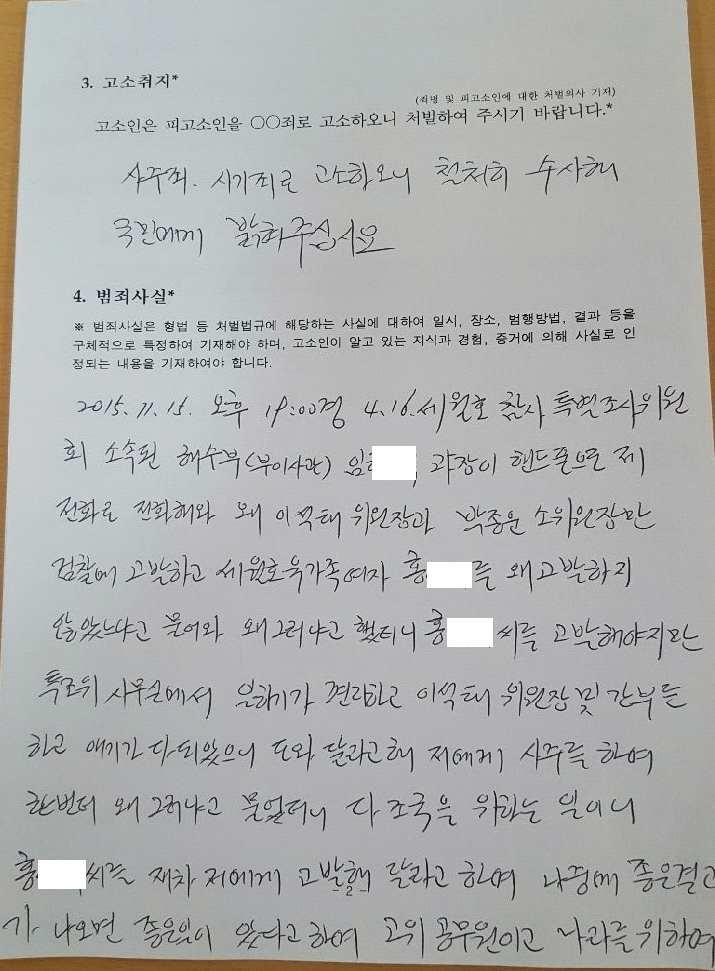 3. 고소취지*
(죄명 및 피고소인에 대한 처벌의사 기재)
고소인은 피고소인을 ○○죄로 고소하오니 처벌하여 주시기 바랍니다.*
사주죄. 사기죄로 고소하오니 철처히 수사해
국민에게 밝혀주십시요
4. 범죄사실*
※ 범죄사실은 형법 등 처벌법규에 해당하는 사실에 대하여 일시, 장소, 범행방법, 결과 등을
구체적으로 특정하여 기재해야 하며, 고소인이 알고 있는 지식과 경험, 증거에 의해 사실로 인
정되는 내용을 기재하여야 합니다.
2015. 11. 15. 오후 19:00경 4.16.세월호 참사 특별조사위원
회 소속된 해수부(부이사관) 임 과장이 핸드폰으로 제
전화로 전화해와 왜 이석태 위원장과 박종운 소위원장만
검찰에 고발하고 세월호유가족여자 홍 를 왜 고발하지
않았느냐고 물어와 왜그러냐고 했더니 홍 씨를 고발해야지만
특조위 사무실에서 일하기가 편하고 이석태 위원장 및 간부들
하고 얘기가 다 되있으니 도와 달라고해 저에게 사주를 하여
한번더 왜 그러냐고 물었더니 다 조국을 위하는 일이니
홍 씨를 재차 저에게 고발해 달라고 하여 나중에 좋은결과
가 나오면 좋은일이 있다고하여 고위 공무원이고 나라를 위하여